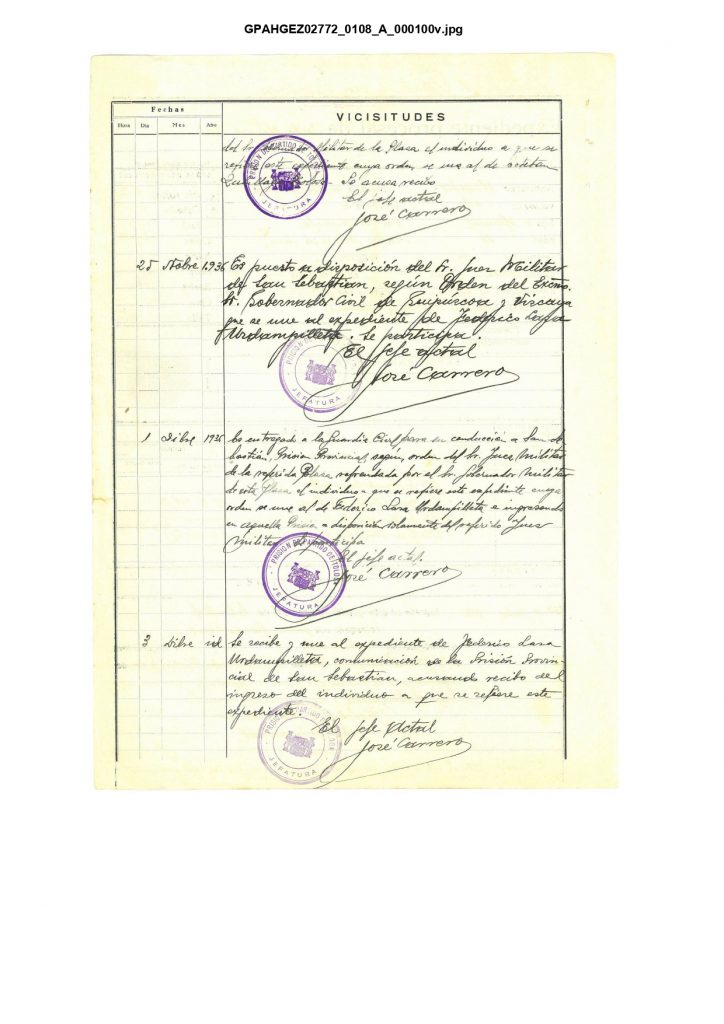 GPAHGEZ02772_0108_A_000100v.jpg
Fechas
VICISITUDES
Hora Dia Mes Año
Militar de la Plaza el individuo a que se
este expediente cuya orden se une al de Esteban
Se acusa recibo
El jefe actal
José Carrero
PRISION DE PARTIDO DE TOLOSA
JEFATURA
25 Nobre 1.936 Es puesto a disposición del Sr. Juez Militar
de San Sebastian, según Orden del Exmo.
Sr. Gobernador Civil de Guipúzcoa y Vizcaya
que se une al expediente de Federico Lasa
Urdampilleta. Se participa.
El Jefe actal
José Carrero
JEFATURA
1 Dibre 1936 Es entregado a la Guardia Civil para su conducción a San Se-
bastián, Prision Provincial, según orden del Sr. Juez Militar
de la referida Plaza refrendada por el Sr. Gobernador Militar
de esta Plaza el individuo a que se refiere este expediente cuya
orden se une al de Federico Lasa Urdampilleta e ingresando
en aquella Prision a disposición solamente del referido Juez
Militar. Se participa
El jefe actal.
José Carrero
PRISION DE PARTIDO DE TOLOSA
JEFATURA
3 Dibre id Se recibe y une al expediente de Federico Lasa
Urdampilleta, comunicación de la Prisión Provin-
cial de San Sebastián, acusando recibo del
ingreso del individuo a que se refiere este
expediente.
El jefe actal
José Carrero
JEFATURA